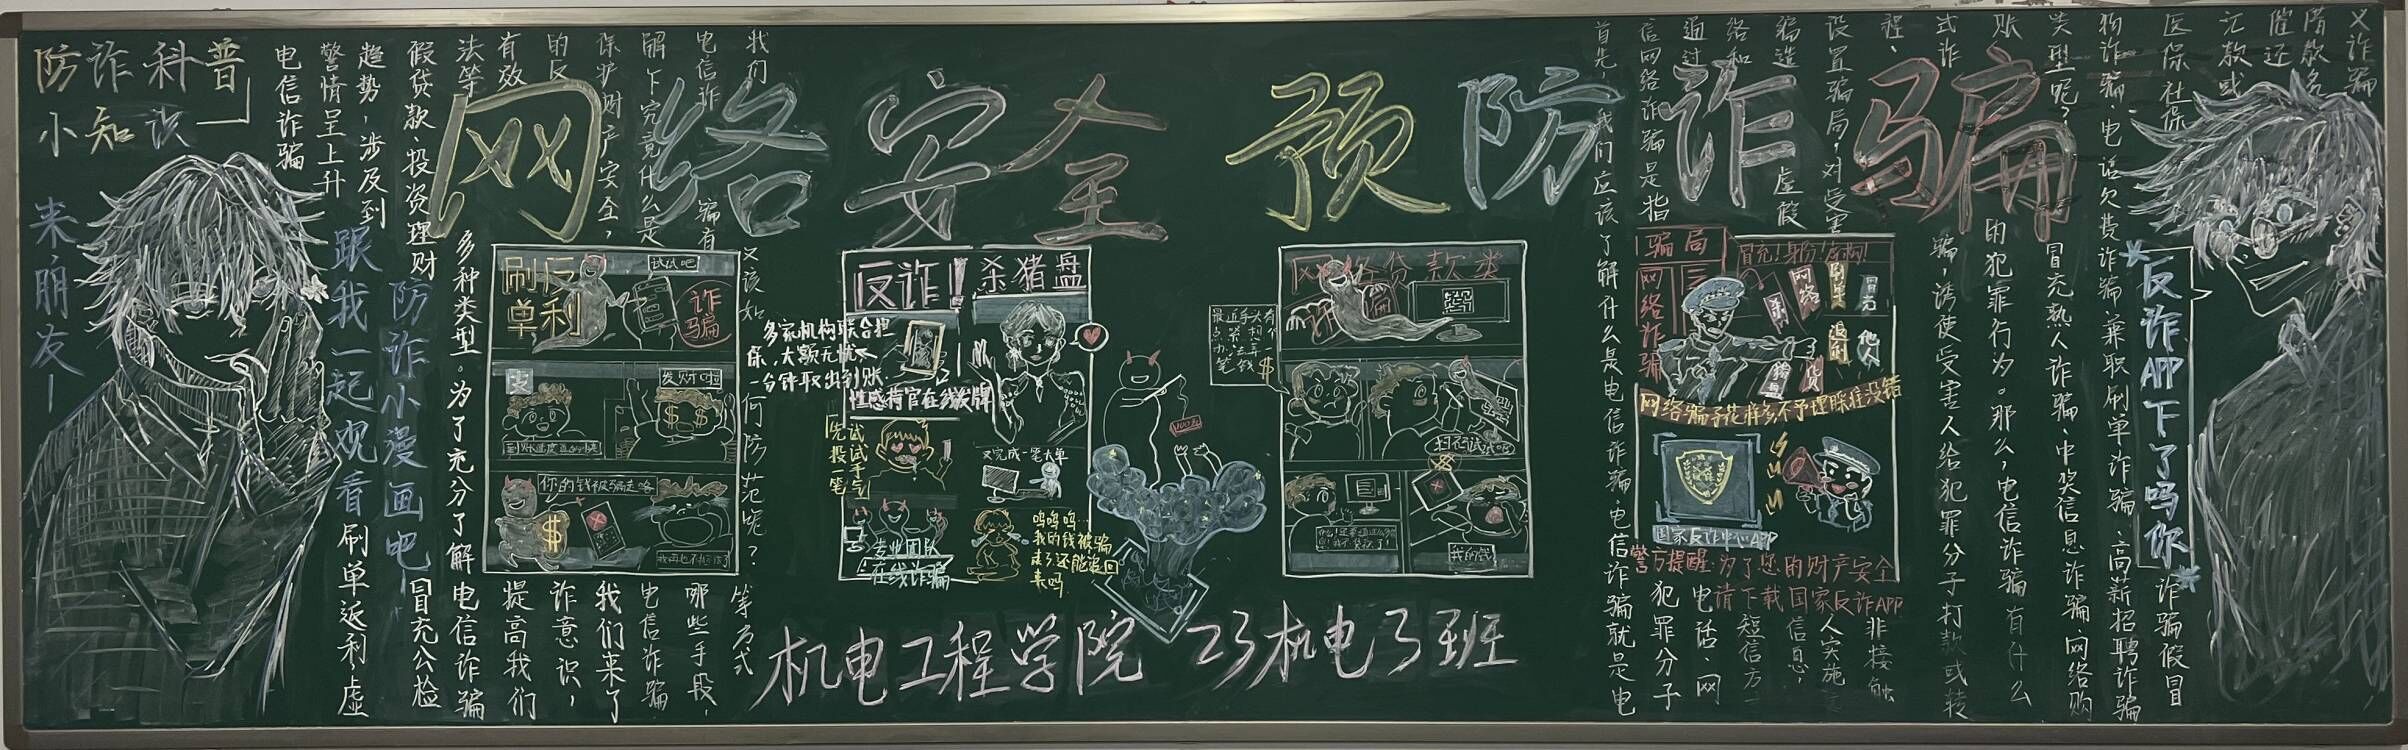 防诈科普
小知识
来朋友
跟我一起观看
防诈小漫画吧
网络安全 预防诈骗
机电工程学院 23机电3班
反诈APP下了吗你
首先,我们应该了解什么是电信诈骗,电信诈骗就是电
信网络诈骗是指
犯罪分子
通过
电话、网
络和
短信方
编造
虚假
信息,
设置骗局,对受害
人实施
程、
非接触
式诈
骗,诱使受害人给犯罪分子打款或转
账
的犯罪行为。那么,电信诈骗有什么
类型呢?
冒充熟人诈骗、中奖信息诈骗 网络购
物诈骗、电话欠费诈骗、兼职刷单诈骗、高薪招聘诈骗
医保社保
诈骗假冒
我们
又该如何防范呢?
等方式
电信诈
骗有
哪些手段,
解下究竟什么是
电信诈骗
保护财产安全,
我们来了
诈意识,
有效
提高我们
法等
多种类型。为了充分了解电信诈骗
假贷款投资理财
冒充公检
趋势,涉及到
刷单返利虚
警情呈上升
电信诈骗
刷单
返利
试试吧
诈骗
发财啦
你的钱被骗走咯
反诈!
杀猪盘
多家机构联合担
保,大额无忧
一台钟取出到账.
性感荷官在线发牌
先试试手气
投
笔
又完成一笔大单
专业团队
在线诈骗
呜呜呜…
我的钱被骗
去了还能追回
来吗.
网络贷款类
诈骗
扫码试试吧
我的钱
骗局
冒充!身份!
网络诈骗
网络
刷单
冒充
他人
返利
杀
猪
网络骗子花样多不予理睬准没错
国家反诈中心APP
警方提醒:为了您的财产安全
请下载国家反诈APP